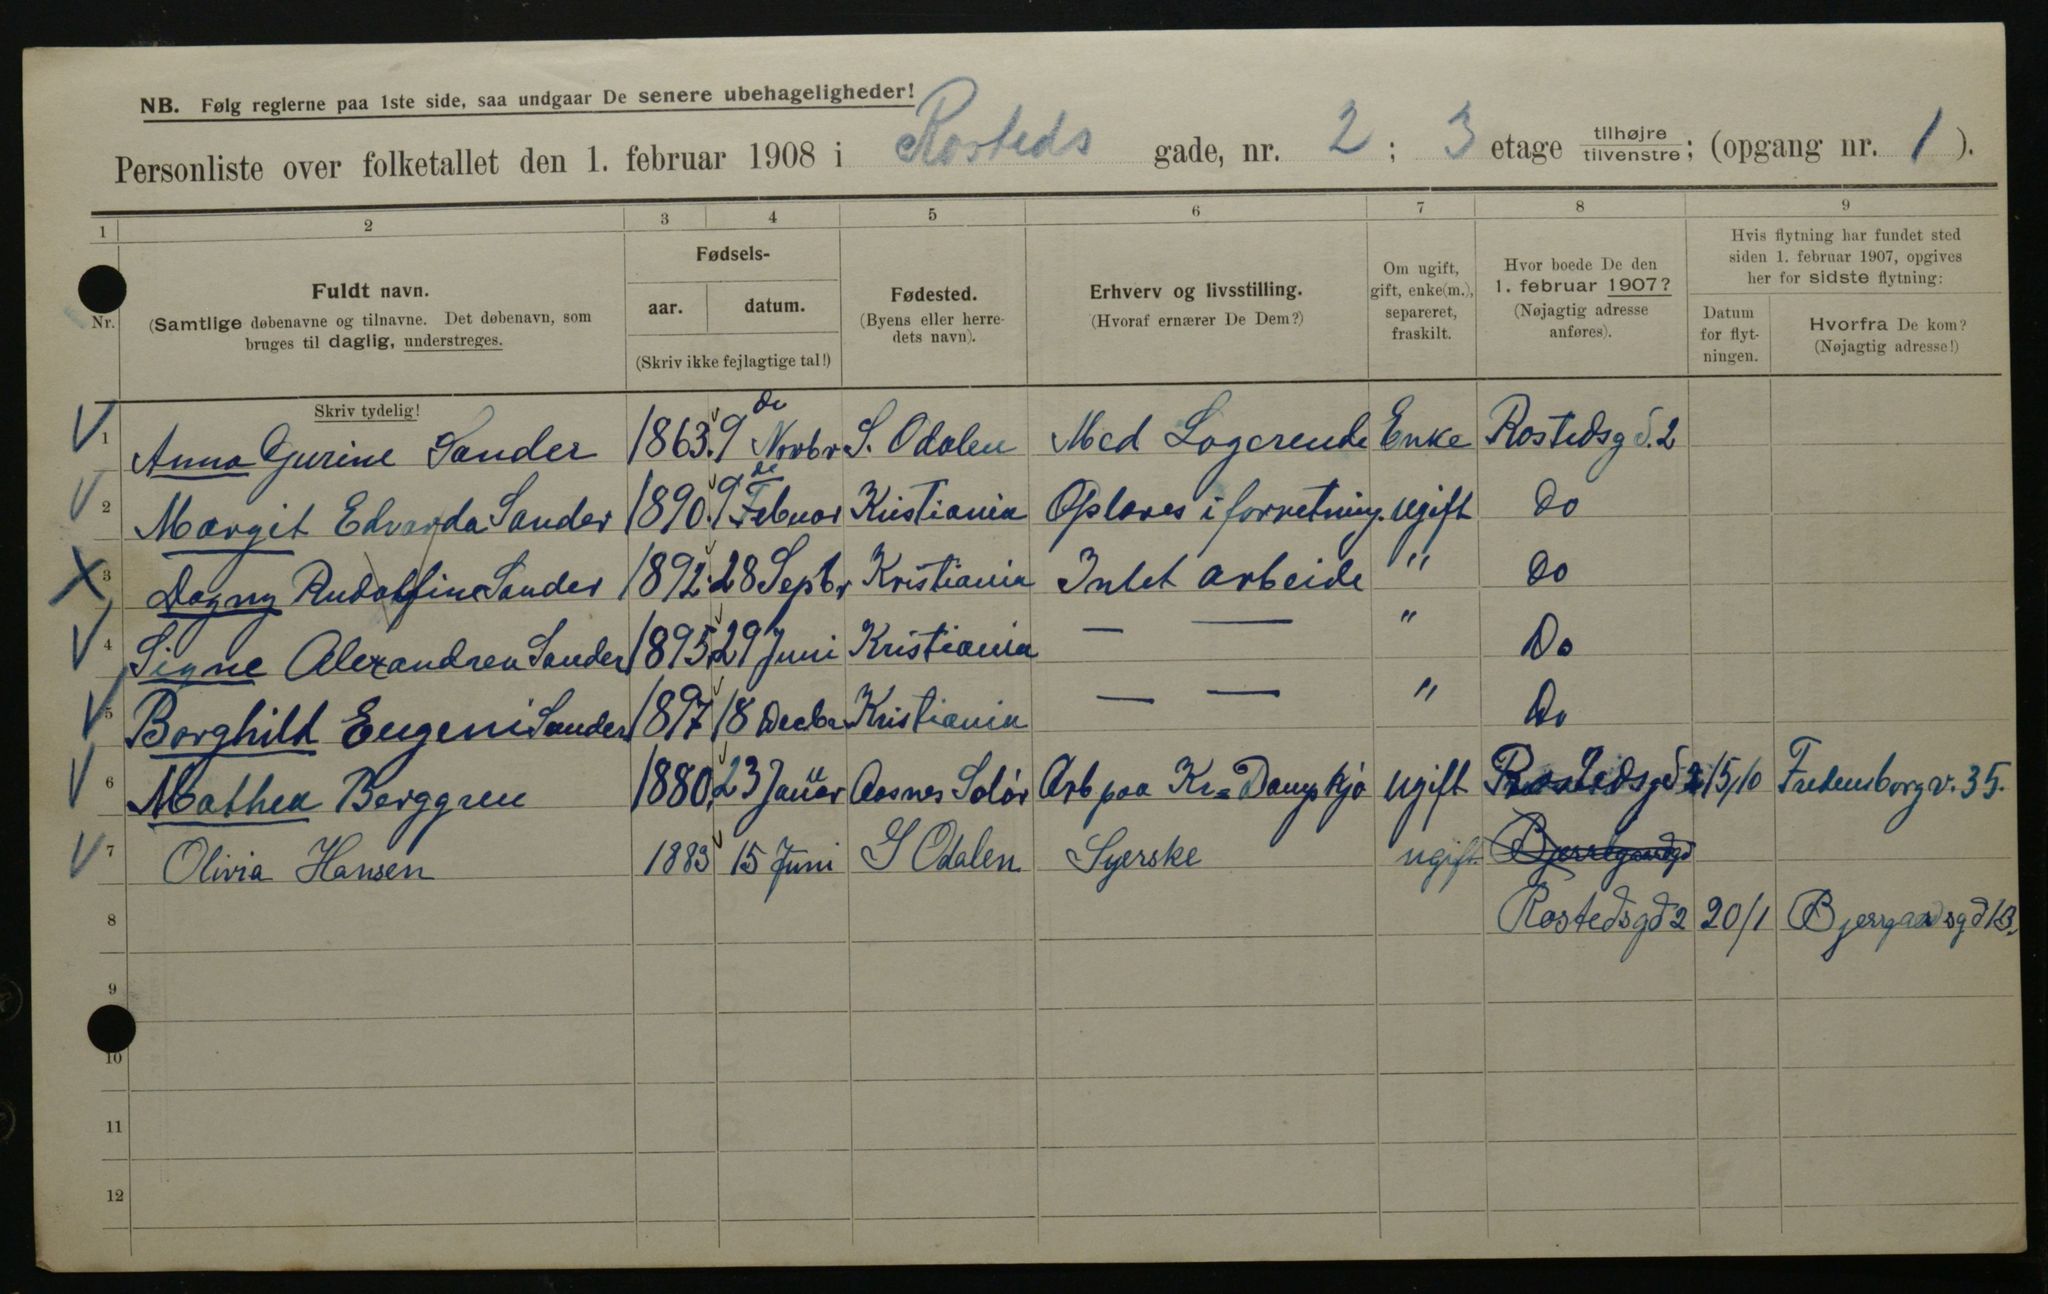 NB. Følg reglerne paa 1ste side, saa undgaar De senere ubehageligheder!
Personliste over folketallet den 1. februar 1908 i Rosteds gade, nr. 2 ; 3 etage tilhøjre tilvenstre ; (opgang nr. 1 ).
1 2 3 4 5 6 7 8 9
Nr.
Fuldt navn.
(Samtlige døbenavne og tilnavne. Det døbenavn, som
bruges til daglig, understreges.
Skriv tydelig!
Fødsels-
aar. datum.
(Skriv ikke fejlagtige tal!)
Fødested.
(Byens eller herre-
dets navn).
Erhverv og livsstilling.
(Hvoraf ernærer De Dem?)
Om ugift,
gift, enke(m.),
separeret,
fraskilt.
Hvor boede De den
1. februar 1907?
(Nøjagtig adresse
anføres).
Hvis flytning har fundet sted
siden 1. februar 1907, opgives
her for sidste flytning:
Datum
for flyt-
ningen.
Hvorfra De kom?
(Nøjagtig adresse!)
1 Anna Gurine Sander 1863. 9 de Novbr S. Odalen Med Logerende Enke Rostedsgd. 2
2 Margit Edvarda Sander 1890. 9 de Februar Kristiania Oplæres i forretning. ugift Do
3 Dagny Rudolfine Sander 1892. 28 Sepbr Kristiania Intet arbeide " Do
4 Signe Alexandrea Sander 1895. 29 Juni Kristiania — — " Do
5 Borghild Eugeni Sander 1897 18 Decbr Kristiania — — " Do
6 Mathea Berggren 1880. 23 Januar Aasnes Solør Arb paa Kr= Dampkjø ugift Rostedsgd 2 15/10 Fredensborgv. 35.
7 Olivia Hansen 1883 15 Juni S Odalen Syerske ugift Bjerregaardsgd
8 Rostedsgd 2 20/1 Bjerrgaardsgd 13.
9
10
11
12